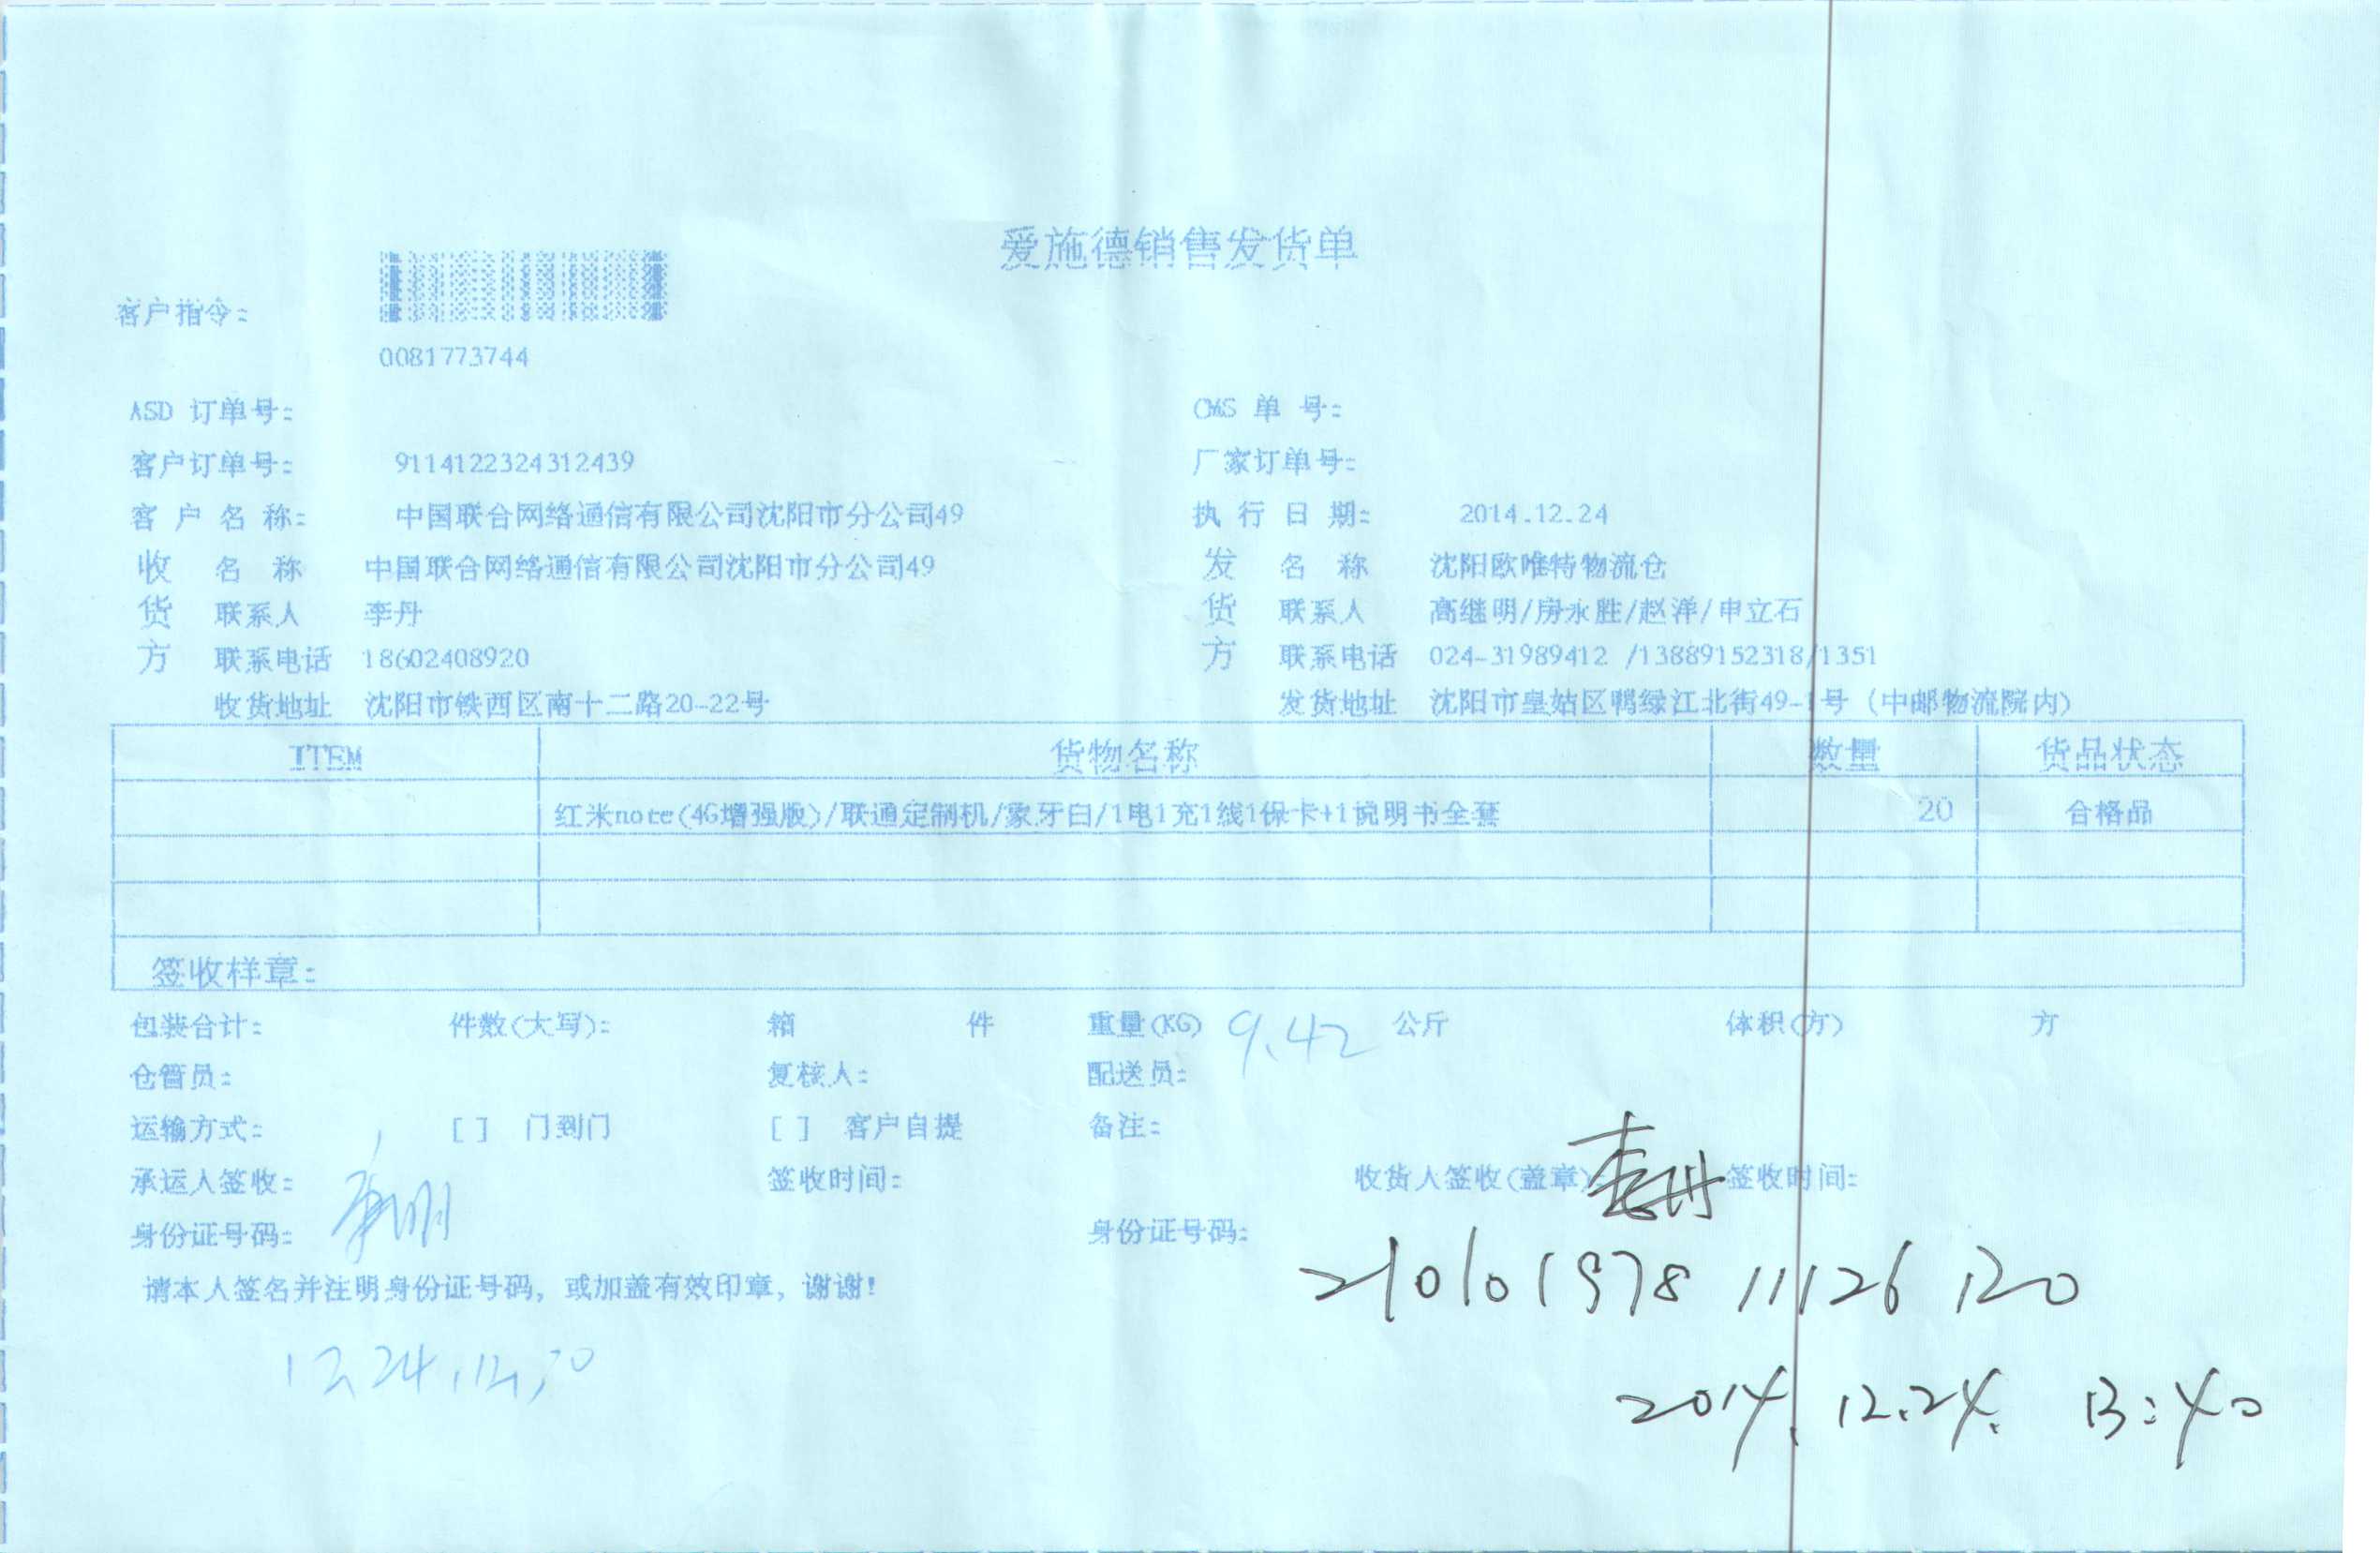 爱施德销售发货单
客户指令:
0081773744
ASD 订单号: CWS 单 号:
客户订单号: 9114122324312439 厂家订单号:
客 户 名 称: 中国联合网络通信有限公司沈阳市分公司49 执 行 日 期: 2014.12.24
收 名 称 中国联合网络通信有限公司沈阳市分公司49 发 名 称 沈阳欧唯特物流仓
货 联系人 李丹 货 联系人 高继明/房永胜/赵洋/申立石
方 联系电话 18602408920 方 联系电话 024-31989412 /13889152318/1351
收货地址 沈阳市铁西区南十二路20-22号 发货地址 沈阳市皇姑区鸭绿江北街49-1号 (中邮物流院内)
ITEM 货物名称 数量 货品状态
红米note(4G增强版)/联通定制机/象牙白/1电1充1线1保卡+1说明书全套 20 合格品
签收样章:
包装合计: 件数(大写): 箱 件 重量(KG) 9.42 公斤 体积(方) 方
仓管员: 复核人: 配送员:
运输方式: [ ] 门到门 [ ] 客户自提 备注:
承运人签收: 签收时间: 收货人签收(盖章): 李丹 签收时间:
身份证号码: 身份证号码:
210101978 11126 120
请本人签名并注明身份证号码, 或加盖有效印章, 谢谢!
2014.12.24. 13:40